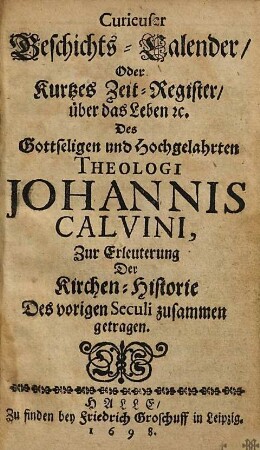 Curieuser
Geschichts-Calender/
Oder
Kurtzes Zeit-Register/
über das Leben ꝛc.
Des
Gottseligen und Hochgelahrten
THEOLOGI
JOHANNIS
CALVINI,
Zur Erleuterung
Der
Kirchen-Historie
Des vorigen Seculi zusammen
getragen.
HALLE/
Zu finden bey Friedrich Groschuff in Leipzig.
1698.